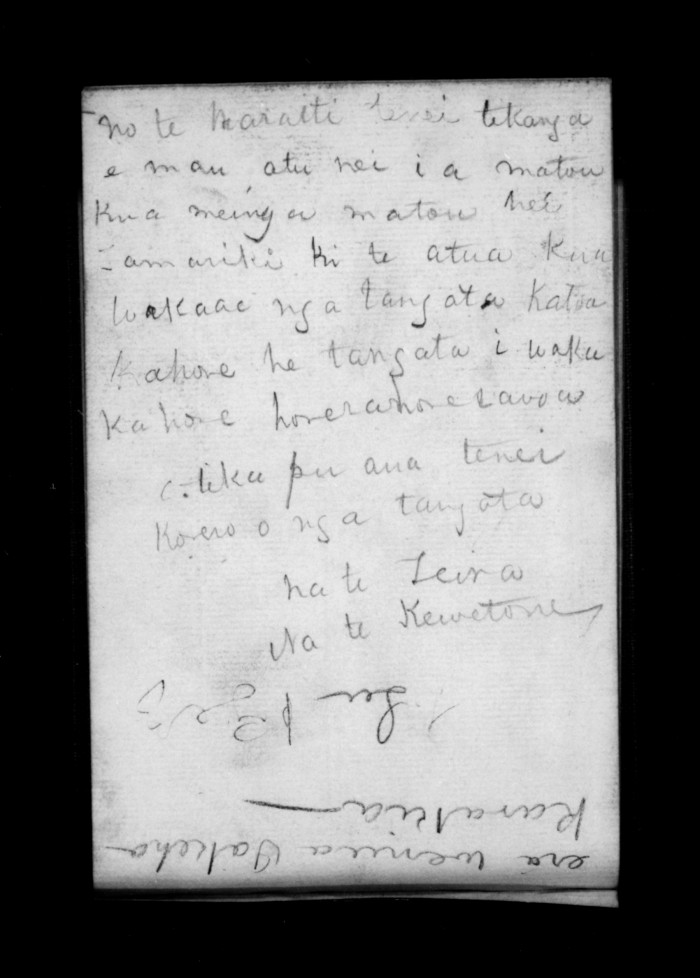 no te Maraiti tenei tekanga
e mau atu nei i a matou
Kua meinga matou hei
Tamariki ki te atua Kua
wakaae nga tangata Katoa
Kahore he tangata i waka
Kahore horerahore
e tika pu ana tenei
Korero o nga tangata
na te Teira
Na te Kewetone
Karakia
era wenua Pakeha